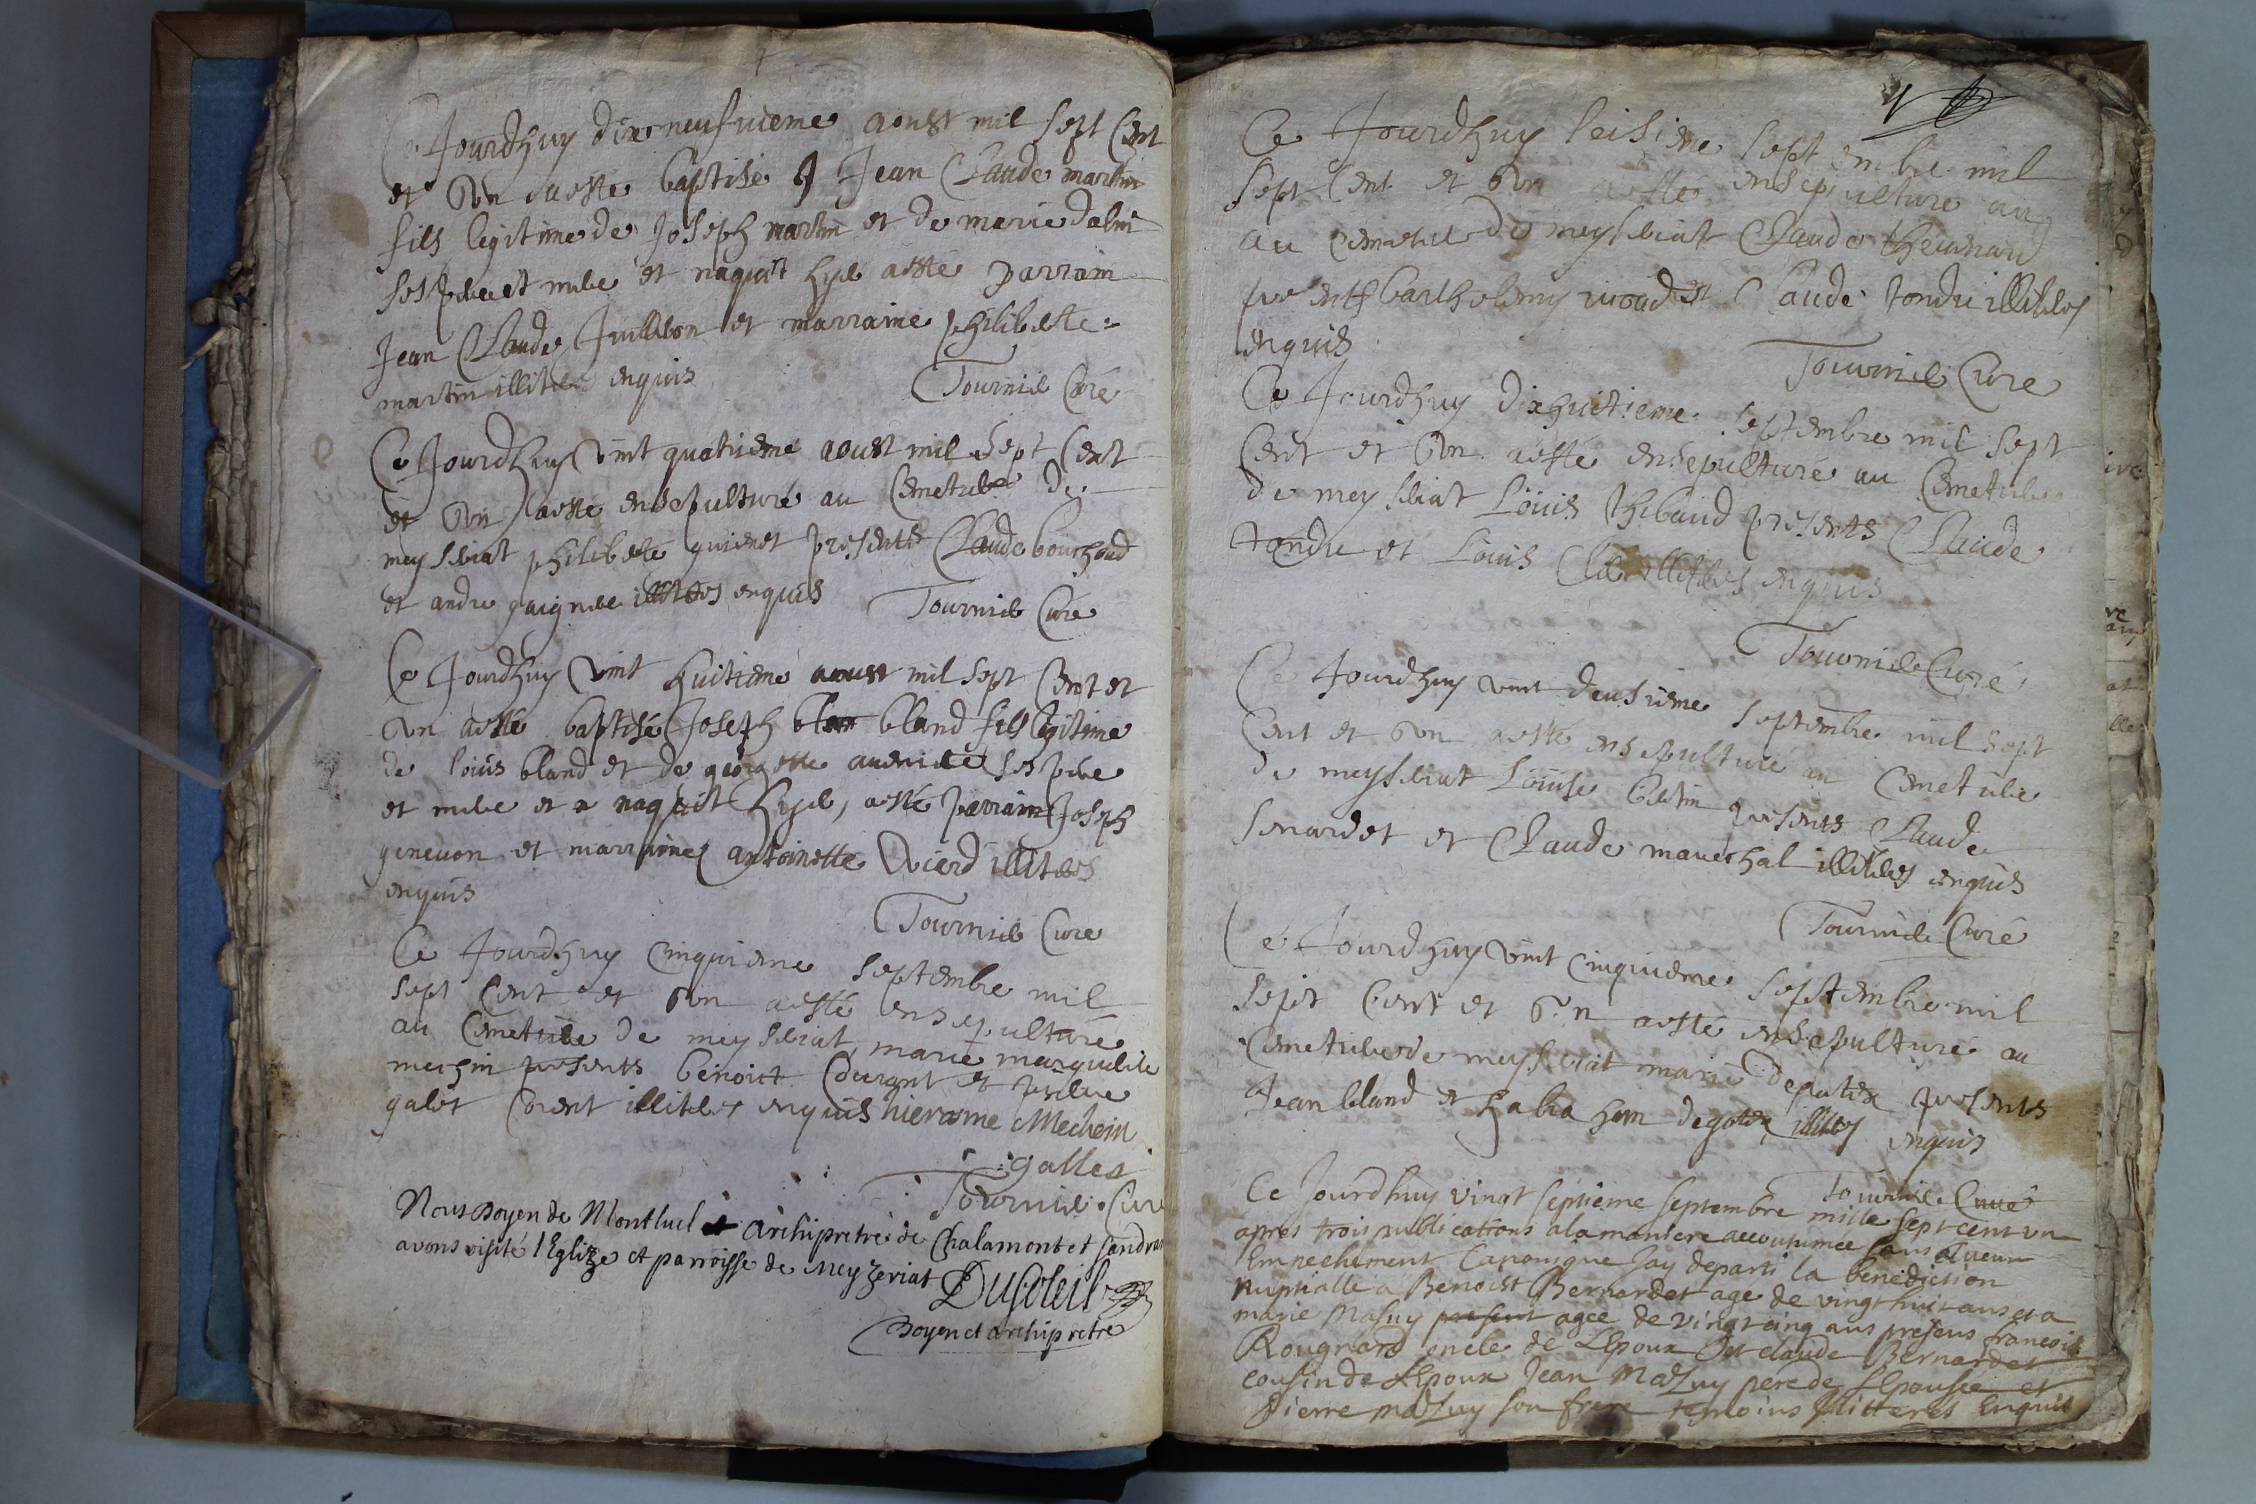 Ce Jourdhuy dix neufvieme aoust mil sept Cent
et Vn aesté baptisé Jean Claude martin
fils legitime de Joseph martin et de marie
ses pere et mere et naquit hyer aesté parrain
Jean Claude et marraine philiberte
martin illiteres enquis
Tournier Curé
Ce Jourdhuy vint quatrieme aoust mil sept Cent
et Vn aesté ensepulturé au Cemetiere de
meyseriat philiberte presents Claude bouchard
et andre illiteres enquis
Tournier Curé
Ce Jourdhuy vint huitieme aoust mil sept Cent et
Vn aesté baptisé Joseph bland fils legitime
de loüis bland et de georgette ses pere
et mere et naquit hyer, aesté parrain Joseph
genevon et marraine antoinette illiteres
enquis
Tournier Curé
Ce Jourdhuy Cinquieme septembre mil
sept Cent et Vn aesté ensepulturé
au Cemetiere de meyseriat marie marguerite
mechin presents benoict et
galet illiteres enquis hierome Mechein
galles
Tournier Cur
Nous Doyen de Montluel et Archipretre de Chalamont et Sandran
avons visité l'Eglize et parroisse de Meyzeriat DuSoleil
Doyen et archipretre
Ce Jourdhuy seisieme septembre mil
sept Cent et Vn aesté ensepulturé
au Cemetiere de meyseriat Claude thevenard
barthelemy Claude tondu illiteres
enquis
Tournier Curé
Ce Jourdhuy dixhuitieme septembre mil sept
Cent et Vn aesté ensepulturé au Cemetiere
de meyseriat Loüis thibaud presents Claude
tondu et Loüis illiteres enquis
Tournier Curé
Ce Jourdhuy vint deusieme septembre mil sept
Cent et Vn aesté ensepulturé au Cemetiere
de meyseriat Loüise presents Claude
senardet et Claude marechal illiteres enquis
Tournier Curé
Ce Jourdhuy vint Cinquieme septembre mil
sept Cent et Vn aesté ensepulturé au
Cemetiere de meyseriat marie presents
Jean bland et illiteres enquis
Tournier Curé
Ce Jourdhuy vingt septieme septembre mille sept cent un
apres trois publications a la maniere accoutumée sans aucun
Empechement Canonique Jay departi la benediction
nuptialle a Benoist Bernardet age de vingt huit ans et a
marie Masuy present agée de vingt cinq ans presens francois
Rougnard oncle de L'Epoux et claude Bernardet
cousin de L'Epoux Jean Mazuy pere de L'Epousée et
Pierre Mazuy son frere temoins illitterés Enquis